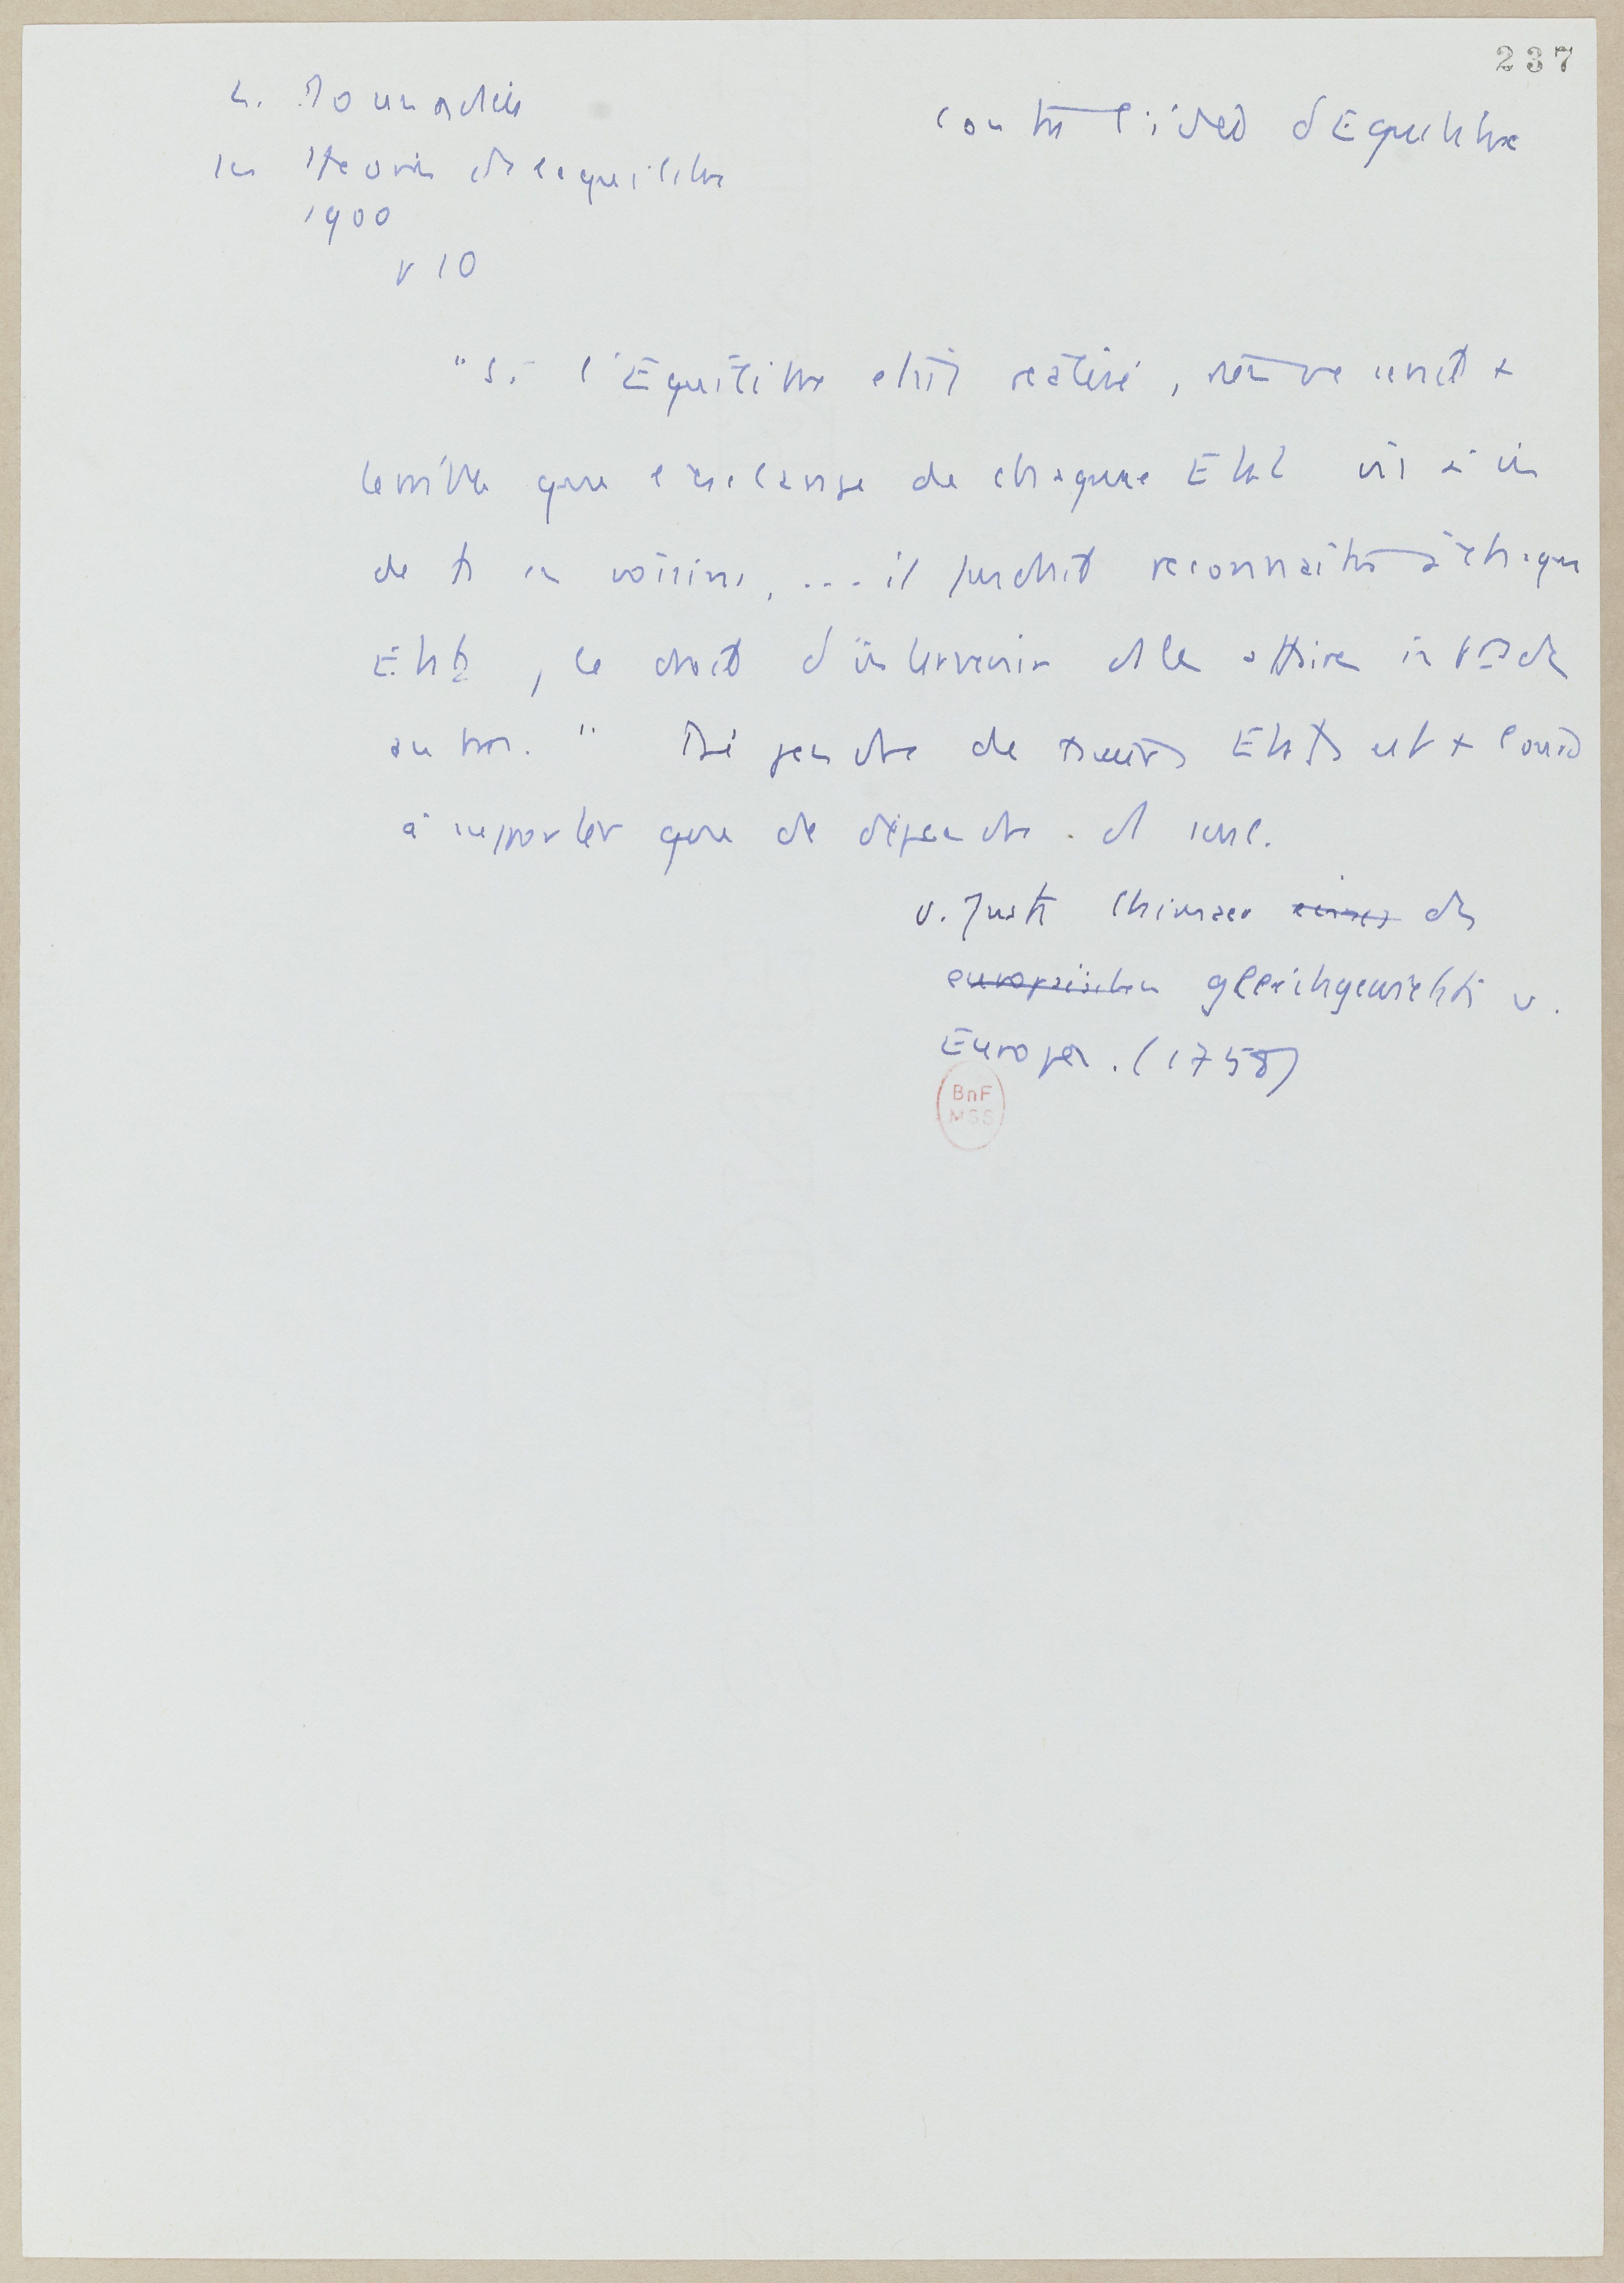 237
L. Donnadieu
La théorie de l'équilibre
1900
p 10
Contre l'idée d'Equilibre
"Si l'Equilibre était réalisé, rien ne serait +
terrible que l'esclavage de chaque Etat vis à vis
de ts ses voisins, ... il faudrait reconnaître à chaque
Etat, le droit d'intervenir ds les affaires int des
autres." Dépendre de plusieurs Etats est + lourd
à supporter que de dépendre d'1 seul.
v. Justi Chimaer eines des
europaischen gleichgewichts v.
Europa. (1758)
BnF
MSS